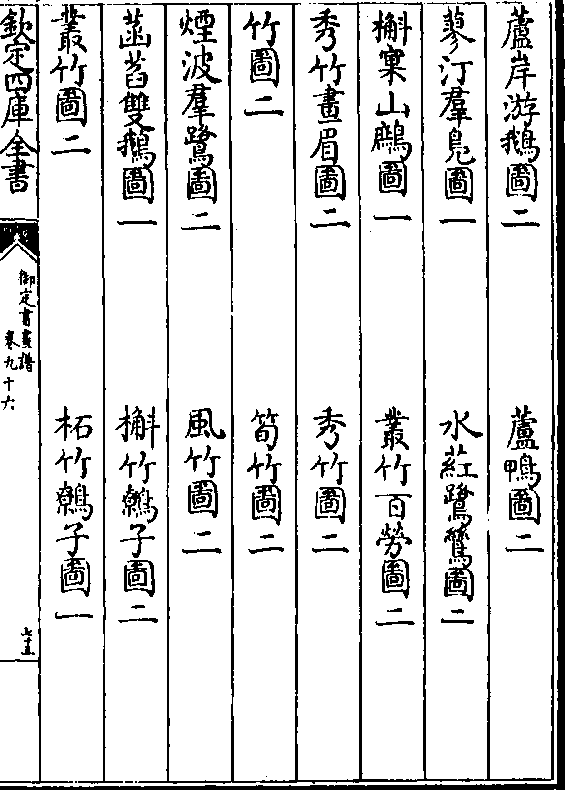 蘆岸游鵝圖二　蘆鴨圖二
蓼汀羣鳬圖一　水葒鷺鷥圖二
槲窠山鷓圖一　叢竹百勞圖二
秀竹畫眉圖二　秀竹圖二
竹圖二　筍竹圖二
煙波羣鷺圖二　風竹圖二
菡萏雙鵝圖一　槲竹鶉子圖二
叢竹圖二　柘竹鶉子圖一
欽定四庫全書
御定書畫譜
卷九十六
七十五